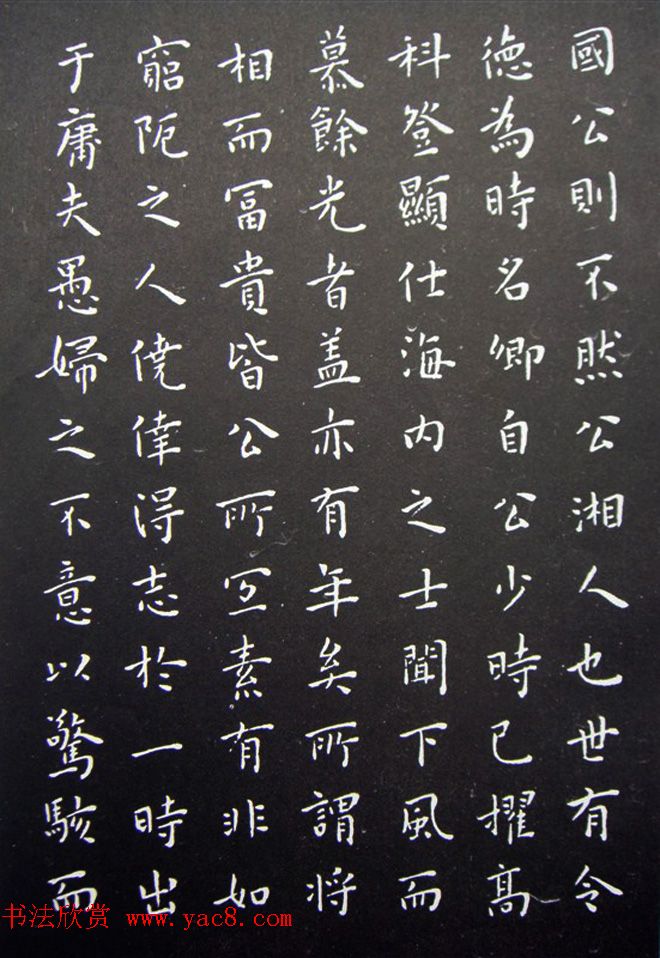 國公則不然公湘人也世有令
德為時名卿自公少時已擢高
科登顯仕海内之士聞下風而
慕餘光者盖亦有年矣所謂将
相而冨貴皆公所冝素有非如
窮阨之人僥倖淂志於一時出
于庸夫愚婦之不意以驚駭而
书法欣赏 www.yac8.com